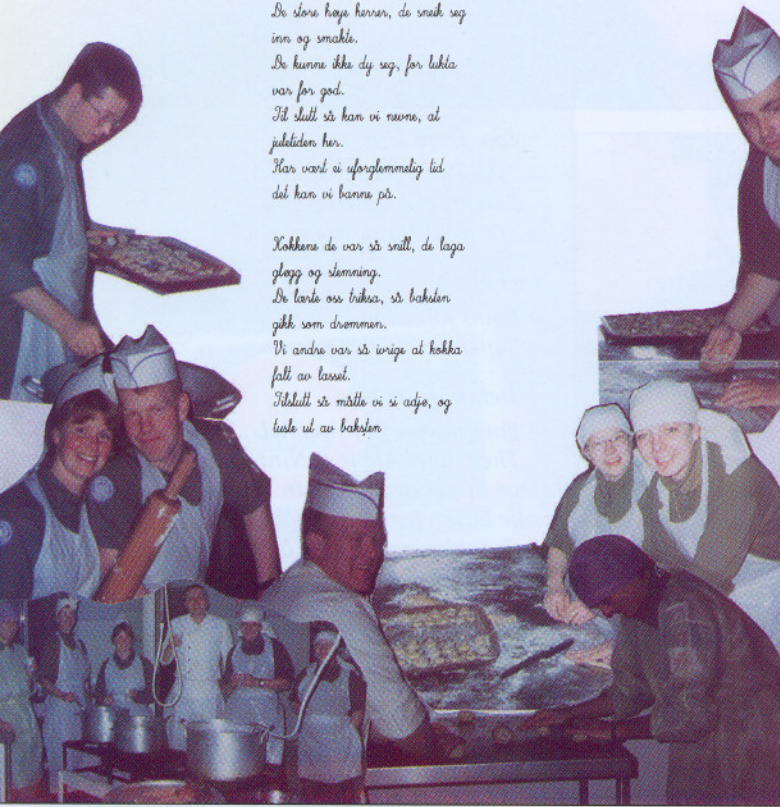 De store høye herrer, de sneik seg
inn og smakte.
De kunne ikke dy seg, for lukta
var for god.
Til slutt så kan vi nevne, at
juletiden her.
Har vært ei uforglemmelig tid
det kan vi banne på.

Kokkene de var så snill, de laga
gløgg og stemning.
De lærte oss triksa, så baksten
gikk som drømmen.
Vi andre var så ivrige at kokka
falt av lasset.
Tilslutt så måtte vi si adjø, og
tusle ut av baksten